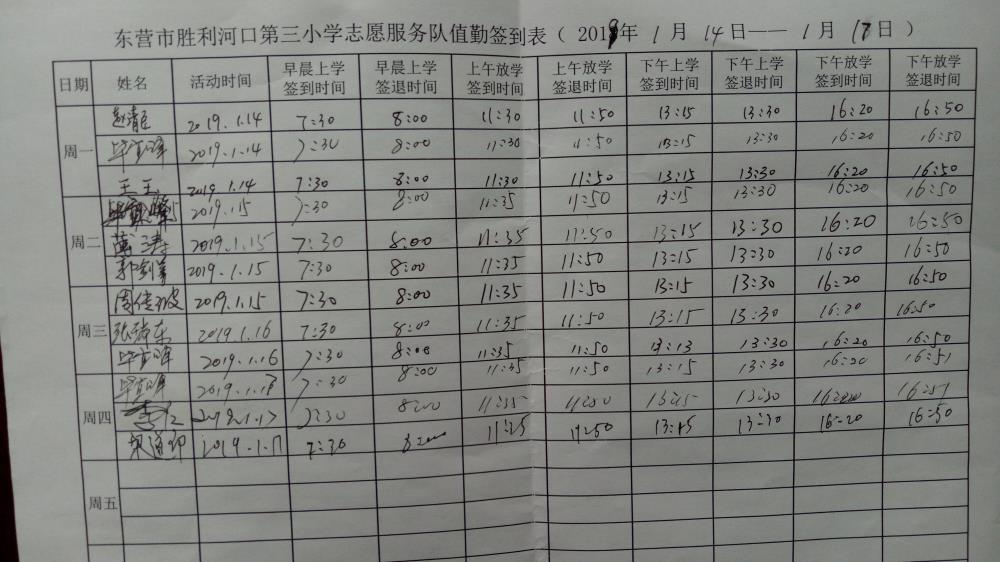 东营市胜利河口第三小学志愿服务队值勤签到表（ 2019年 1 月 14 日—— 1 月 17 日 ）
日期 姓名 活动时间 早晨上学签到时间 早晨上学签退时间 上午放学签到时间 上午放学签退时间 下午上学签到时间 下午上学签退时间 下午放学签到时间 下午放学签退时间
周一 2019.1.14 7:30 8:00 11:30 11:50 13:15 13:30 16:20 16:50
2019.1.14 7:30 8:00 11:30 11:50 13:15 13:30 16:20 16:50
王玉 2019.1.14 7:30 8:00 11:30 11:50 13:15 13:30 16:20 16:50
周二 2019.15 7:30 8:00 11:35 11:50 13:15 13:30 16:20 16:50
涛 2019.1.15 7:30 8:00 11:35 11:50 13:15 13:30 16:20 16:50
郭剑 2019.1.15 7:30 8:00 11:35 11:50 13:15 13:30 16:20 16:50
周三 周传波 2019.1.15 7:30 8:00 11:35 11:50 13:15 13:30 16:20 16:50
张瑞东 2019.1.16 7:30 8:00 11:35 11:50 13:15 13:30 16:20 16:50
2019.1.16 7:30 8:00 11:35 11:50 13:13 13:30 16:20 16:50
周四 7:30 8:00 11:35 11:50 13:15 13:30 16:20 16:51
2019.1.17 7:30 8:00 11:35 11:50 13:15 13:30 16:51
2019.1.17 7:30 11:25 11:50 13:15 13:30 16:20 16:50
周五